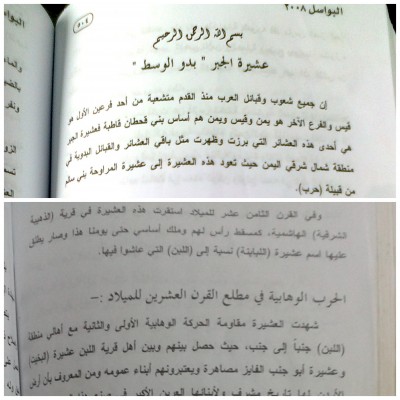 البواسل ٢٠٠٨
٥٠٤
بسم الله الرحمن الرحيم
عشيرة الجبر " بدو الوسط "
إن جميع شعوب وقبائل العرب منذ القدم متشعبة من أحد فرعين الأول هو
قيس والفرع الآخر هو يمن وقيس ويمن هم أساس بني قحطان قاطبة فعشيرة الجبر
هي أحدى هذه العشائر التي برزت وظهرت مثل باقي العشائر والقبائل البدوية في
منطقة شمال شرقي اليمن حيث تعود هذه العشيرة إلى عشيرة المراوحة بني سالم
من قبيلة (حرب).
وفي القرن الثامن عشر للميلاد استقرت هذه العشيرة في قرية (الذهيبة
الشرقية) الهاشمية، كمسقط رأس لهم وملك أساسي حتى يومنا هذا وصار يطلق
عليها اسم عشيرة (اللبابنة) نسبة إلى (اللبن) التي عاشوا فيها.
الحرب الوهابية في مطلع القرن العشرين للميلاد :–
شهدت العشيرة مقاومة الحركة الوهابية الأولى والثانية مع أهالي منطقة
(اللبن) جنباً إلى جنب، حيث حصل بينهم وبين أهل قرية اللبن عشيرة (البخيت)
وعشيرة أبو جنب الفايز مصاهرة ويعتبرونهم أبناء عمومه ومن المعروف بأن أرض